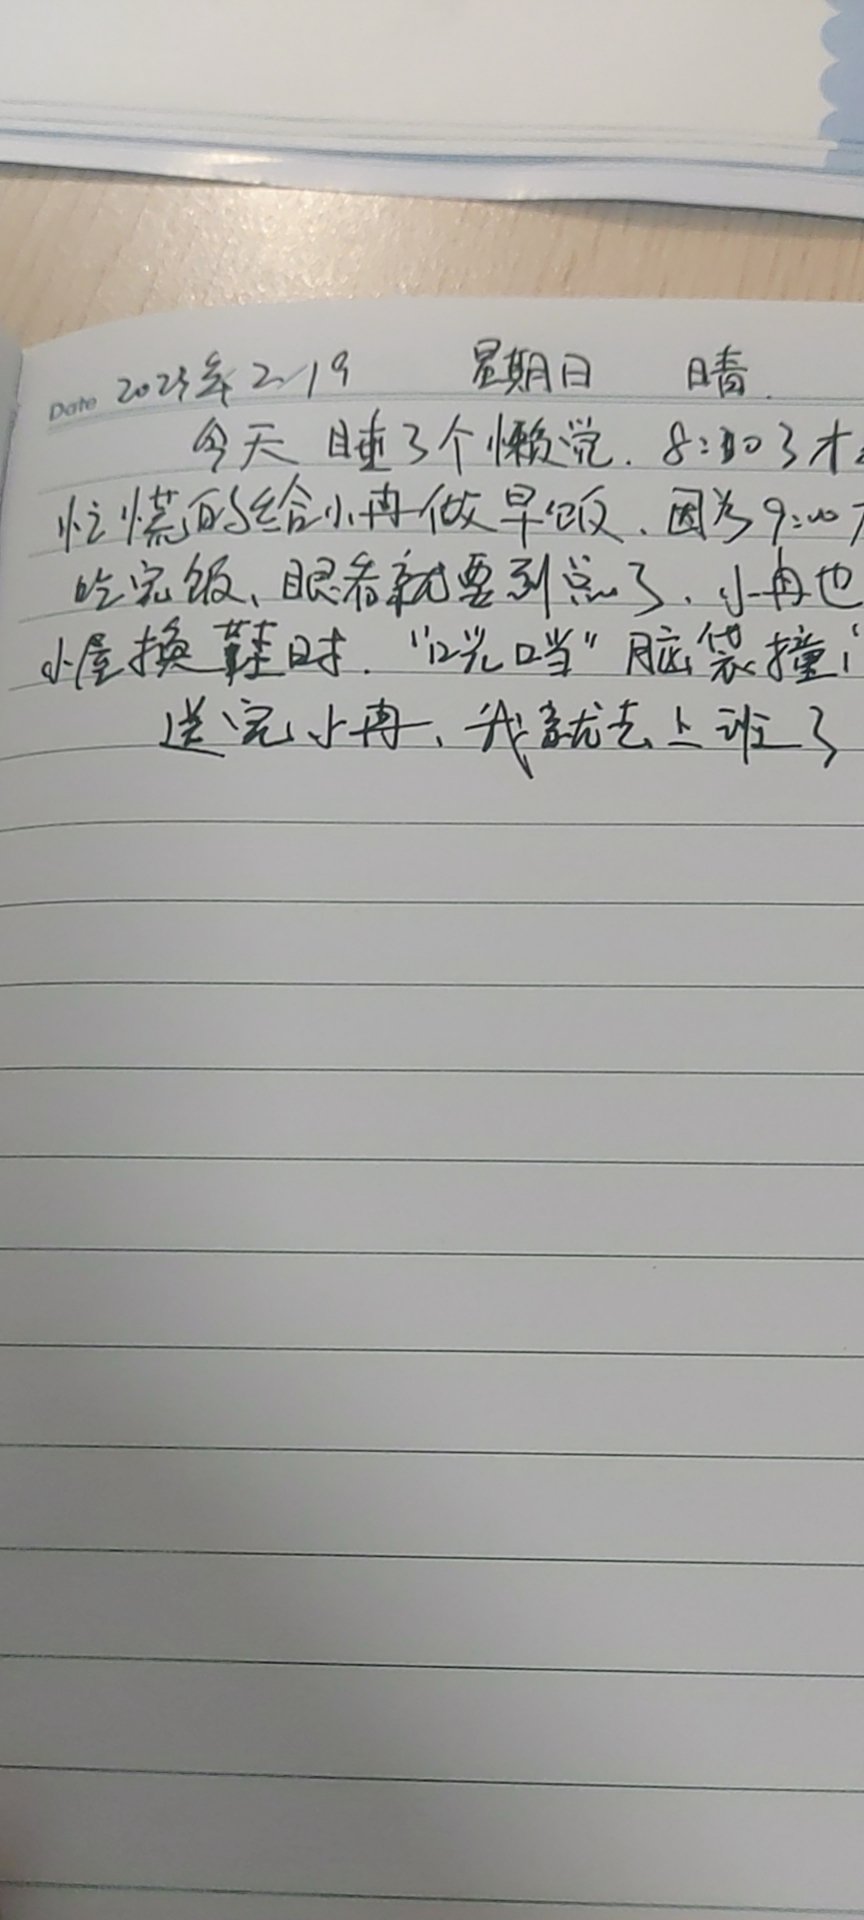 Date 2023年2/19 星期日 晴.
今天睡了个懒觉.8:30了才
忙慌的给小冉做早饭、因为9:00
吃完饭、眼看就要到点了、小冉也
小屋换鞋时."咣当"脑袋撞
送完小冉、我就去上班了